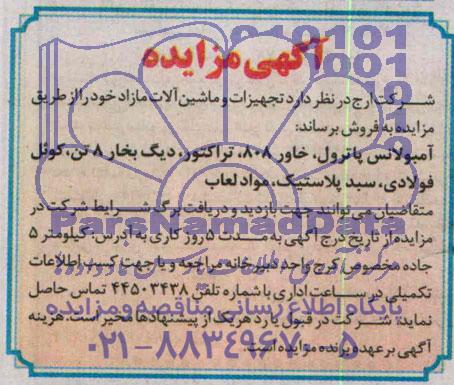 آگهی مزایده
شرکت ارج در نظر دارد تجهیزات و ماشین آلات مازاد خود را از طریق
مزایده به فروش برساند:
آمبولانس پاترول، خاور ۸۰۸، تراکتور، دیگ بخار ۸ تن، کوئل
فولادی، سبد پلاستیک، مواد لعاب
متقاضیان می‌توانند جهت بازدید و دریافت برگ شرایط شرکت در
مزایده از تاریخ درج آگهی به مدت ۵ روز کاری به آدرس: کیلومتر ۵
جاده مخصوص کرج واحد دبیرخانه مراجعه و یا جهت کسب اطلاعات
تکمیلی در ساعات اداری با شماره تلفن ۴۴۵۰۳۴۳۸ تماس حاصل
نمایند شرکت در قبول یا رد هر یک از پیشنهادها مخیر است. هزینه
آگهی بر عهده برنده مزایده است.
ParsNamadData
پایگاه اطلاع رسانی مناقصه و مزایده
۰۲۱-۸۸۳۴۹۶۷۰-۵